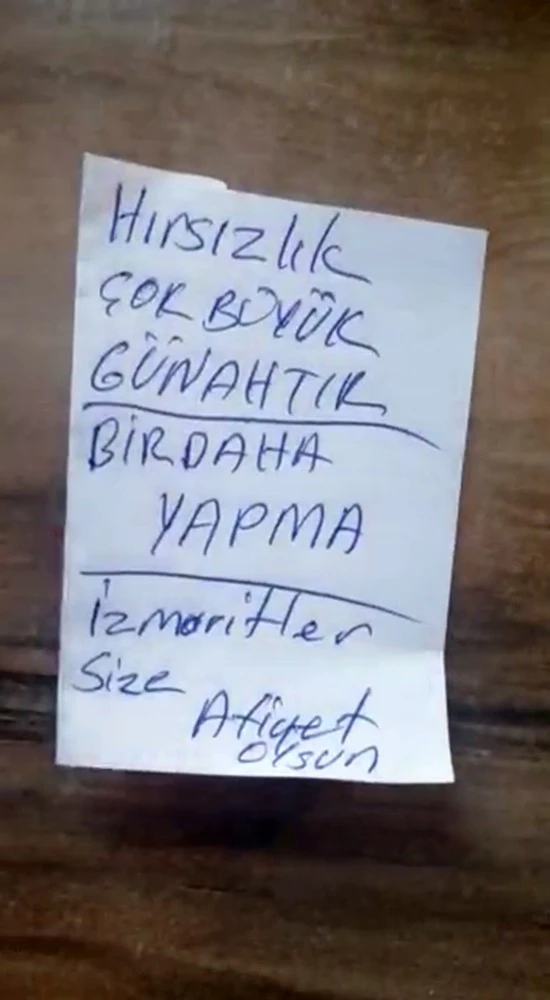 Hırsızlık
ÇOK BÜYÜK
GÜNAHTIR
BİRDAHA
YAPMA
izmaritler
Size
Afiyet
olsun